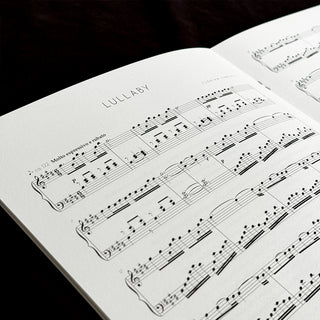 LULLABY
Molto espressivo e rubato